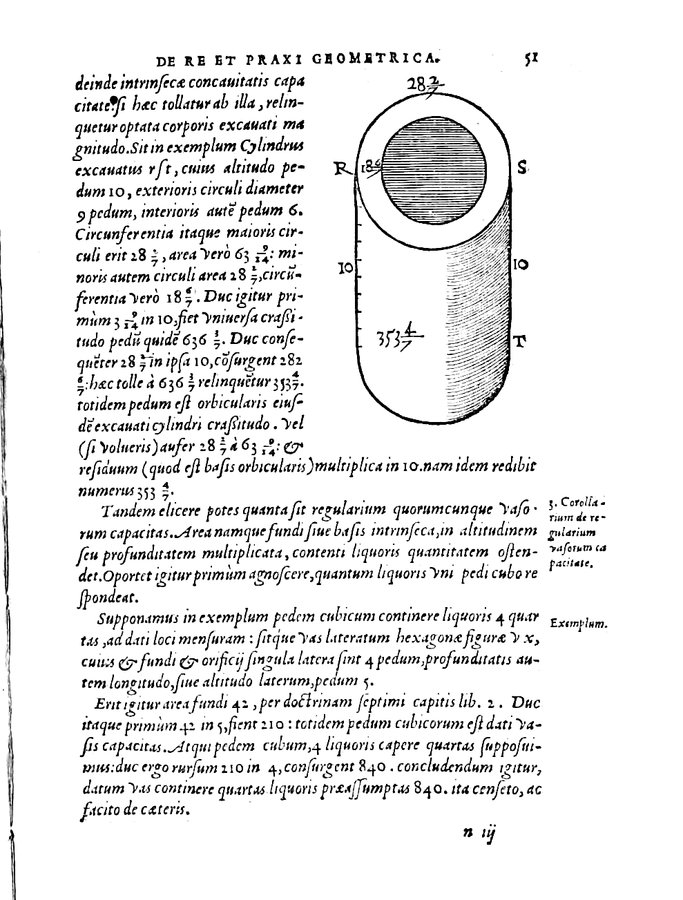 DE RE ET PRAXI GEOMETRICA. 51
deinde intrinsecæ concauitatis capa
citate: si hæc tollatur ab illa, relin-
quetur optata corporis excauati ma
gnitudo. Sit in exemplum Cylindrus
excauatus r s t, cuius altitudo pe-
dum 10, exterioris circuli diameter
9 pedum, interioris autē pedum 6.
Circunferentia itaque maioris cir-
culi erit 28 2/7, area verò 63 9/14: mi-
noris autem circuli area 28 2/7, circū-
ferentia verò 18 6/7. Duc igitur pri-
mùm 63 9/14 in 10, fiet vniuersa crassi-
tudo pedū quidē 636 3/7. Duc conse-
quēter 28 2/7 in ipsa 10, cōsurgent 282
6/7: hæc tolle à 636 3/7 relinquētur 353 4/7.
totidem pedum est orbicularis eius-
dē excauati cylindri crassitudo. Vel
(si volueris) aufer 28 2/7 à 63 9/14: &
residuum (quod est basis orbicularis) multiplica in 10. nam idem redibit
numerus 353 4/7.
Tandem elicere potes quanta sit regularium quorumcunque vaso-
rum capacitas. Area namque fundi siue basis intrinseca, in altitudinem
seu profunditatem multiplicata, contenti liquoris quantitatem osten-
det. Oportet igitur primùm agnoscere, quantum liquoris vni pedi cubo re
spondeat.
Supponamus in exemplum pedem cubicum continere liquoris 4 quar
tas, ad dati loci mensuram: sitque vas lateratum hexagonæ figuræ v x,
cuius & fundi & orificij singula latera sint 4 pedum, profunditatis au-
tem longitudo, siue altitudo laterum, pedum 5.
Erit igitur area fundi 42, per doctrinam septimi capitis lib. 2. Duc
itaque primùm 42 in 5, fient 210: totidem pedum cubicorum est dati va-
sis capacitas. Atqui pedem cubum, 4 liquoris capere quartas supposui-
mus: duc ergo rursum 210 in 4, consurgent 840. concludendum igitur,
datum vas continere quartas liquoris præassumptas 840. ita censeto, ac
facito de cæteris.
n iij
28 2/7
R
18 6/7
S
10
10
353 4/7
T
3. Corolla-
rium de re-
gularium
vasorum ca
pacitate.
Exemplum.